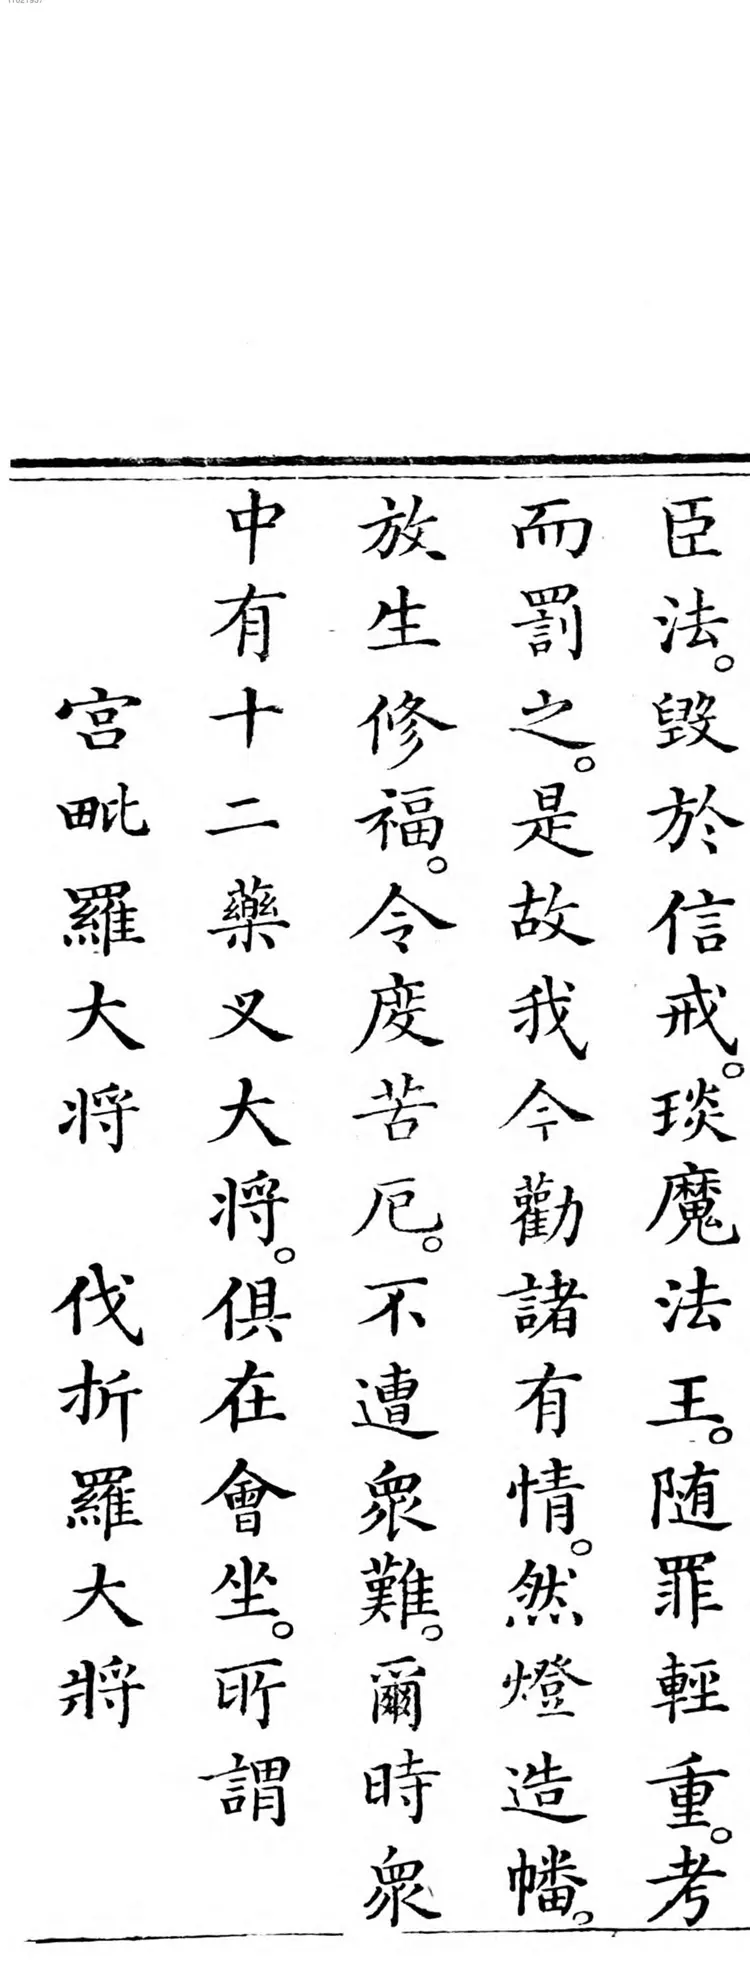 臣法。毀於信戒。琰魔法王。随罪輕重。考
而罰之。是故我今勸諸有情。然燈造幡。
放生修福。令度苦厄。不遭衆難。爾時衆
中有十二藥叉大將。俱在會坐。所謂
宮毗羅大將　伐折羅大將